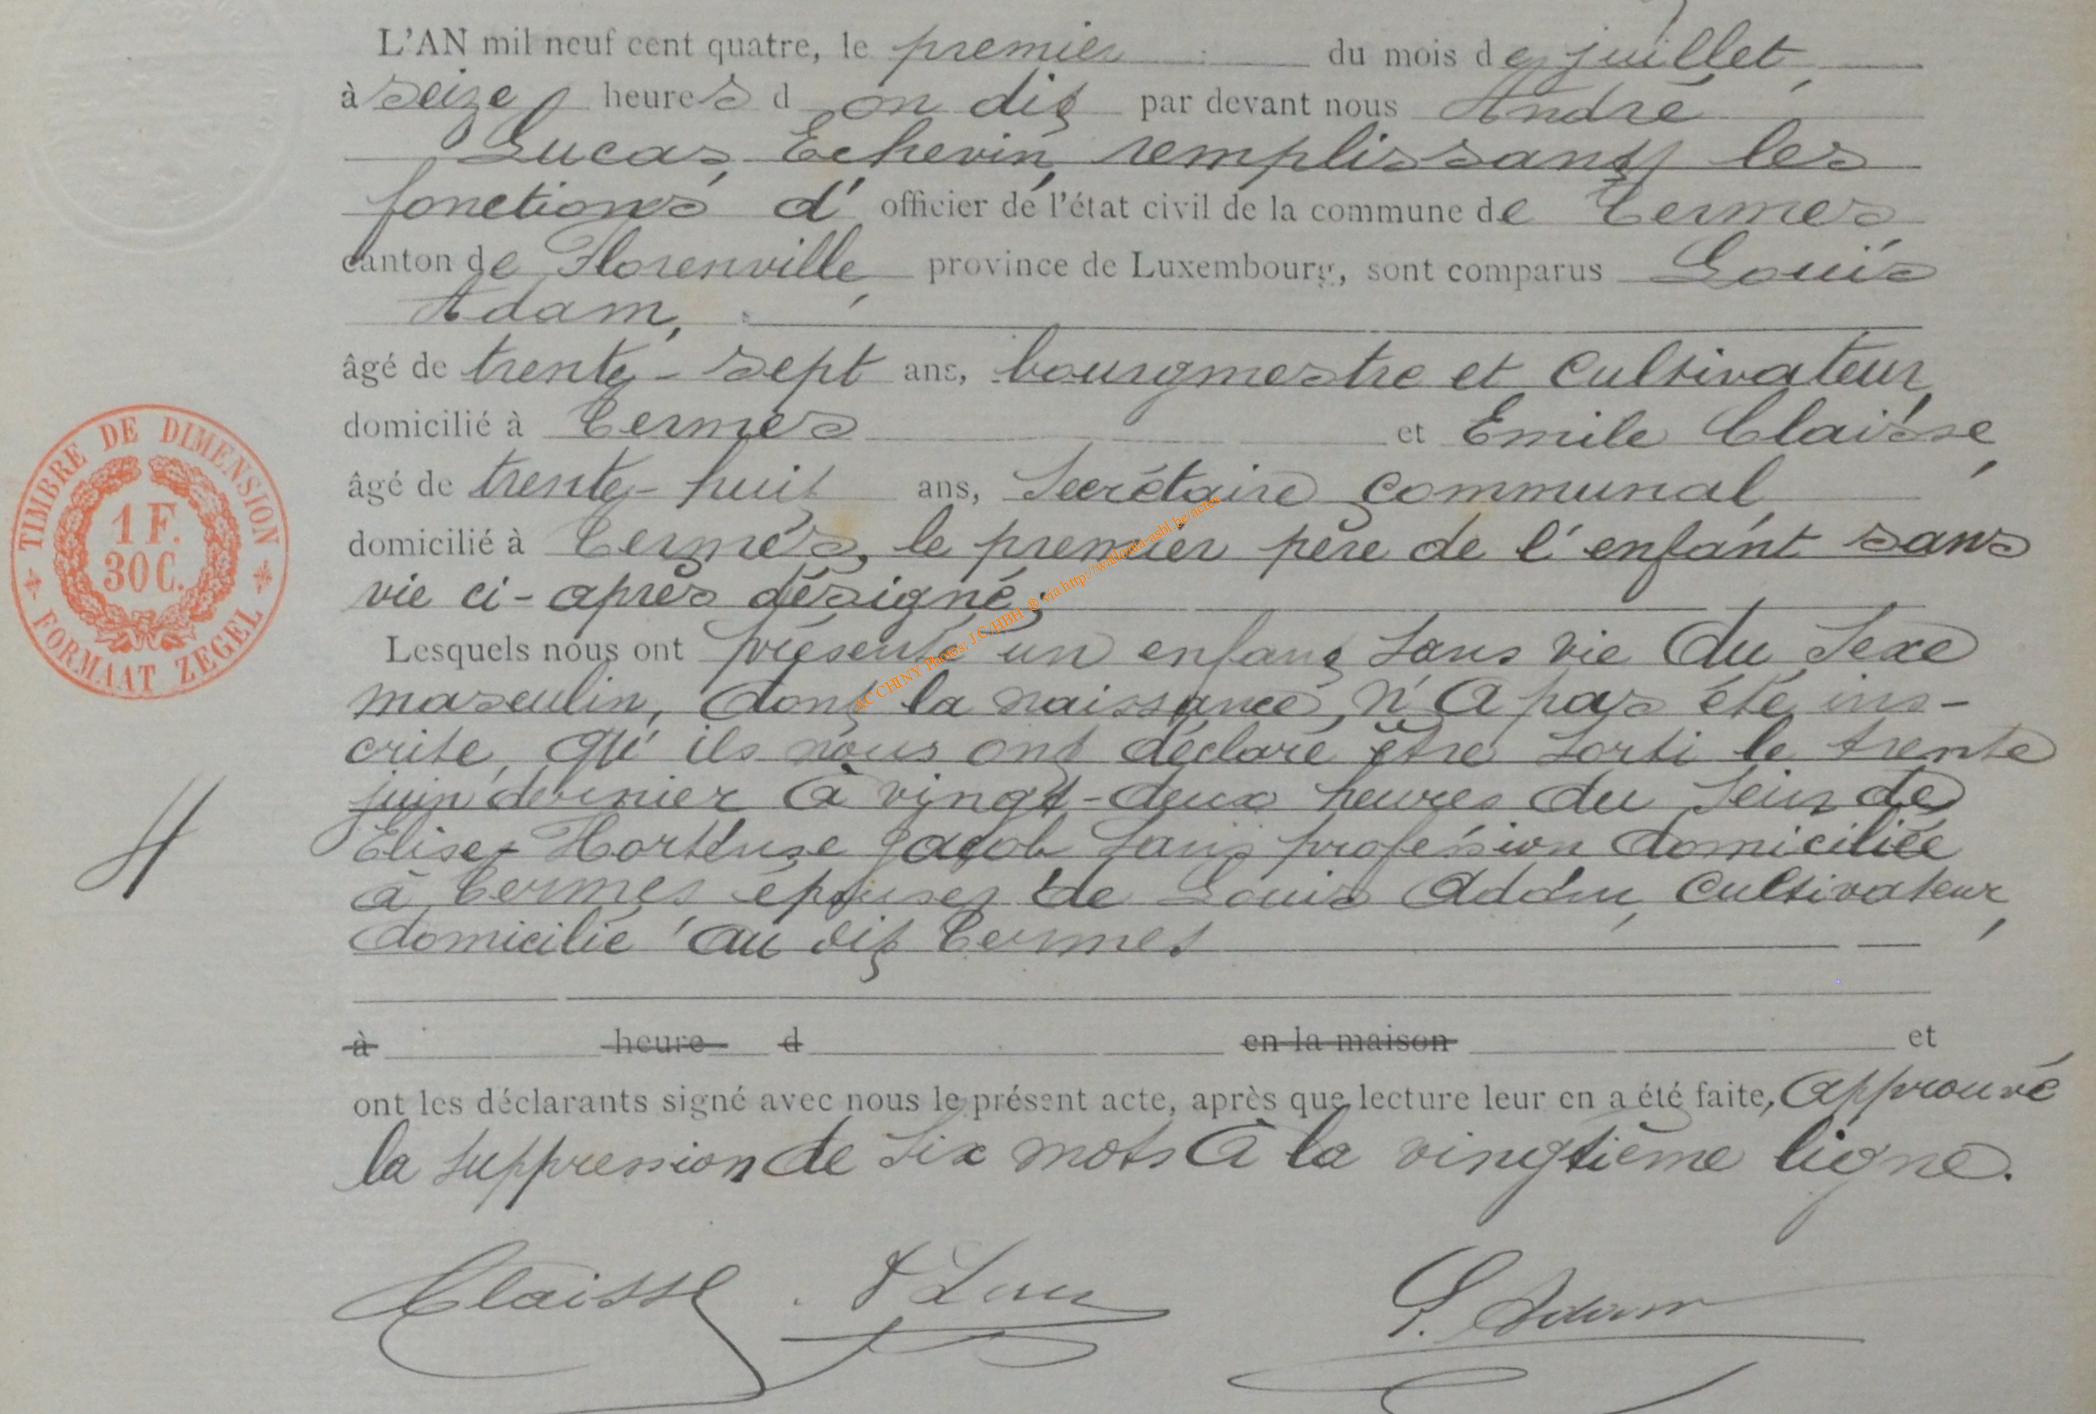 L'AN mil neuf cent quatre, le premier du mois de juillet,
à seize heures d on dit par devant nous André
Lucas, Echevin, remplissant les
fonctions d' officier de l'état civil de la commune de Termes
canton de Florenville, province de Luxembourg, sont comparus Louis
Adam,
âgé de trente-sept ans, bourgmestre et cultivateur,
domicilié à Termes et Emile Claisse,
âgé de trente-huit ans, Secrétaire communal,
domicilié à Termes, le premier père de l'enfant sans
vie ci-après désigné;
Lesquels nous ont présenté un enfant sans vie du sexe
masculin, dont la naissance n'a pas été ins-
crite, qu'ils nous ont déclaré être sorti le trente
juin dernier à vingt-deux heures du sein de
Elise-Hortense Jacob sans profession domiciliée
à Termes épouse de Louis Adam, cultivateur,
domicilié au dit Termes
à heure d en la maison et
ont les déclarants signé avec nous le présent acte, après que lecture leur en a été faite, Approuvé
la suppression de six mots à la vingtième ligne.
Claisse A Lucas L. Adam
TIMBRE DE DIMENSION
1 F.
30 C.
FORMAAT ZEGEL
AC CHINY Photos: J.C/HBH ® via http://wallonia-asbl.be/actes